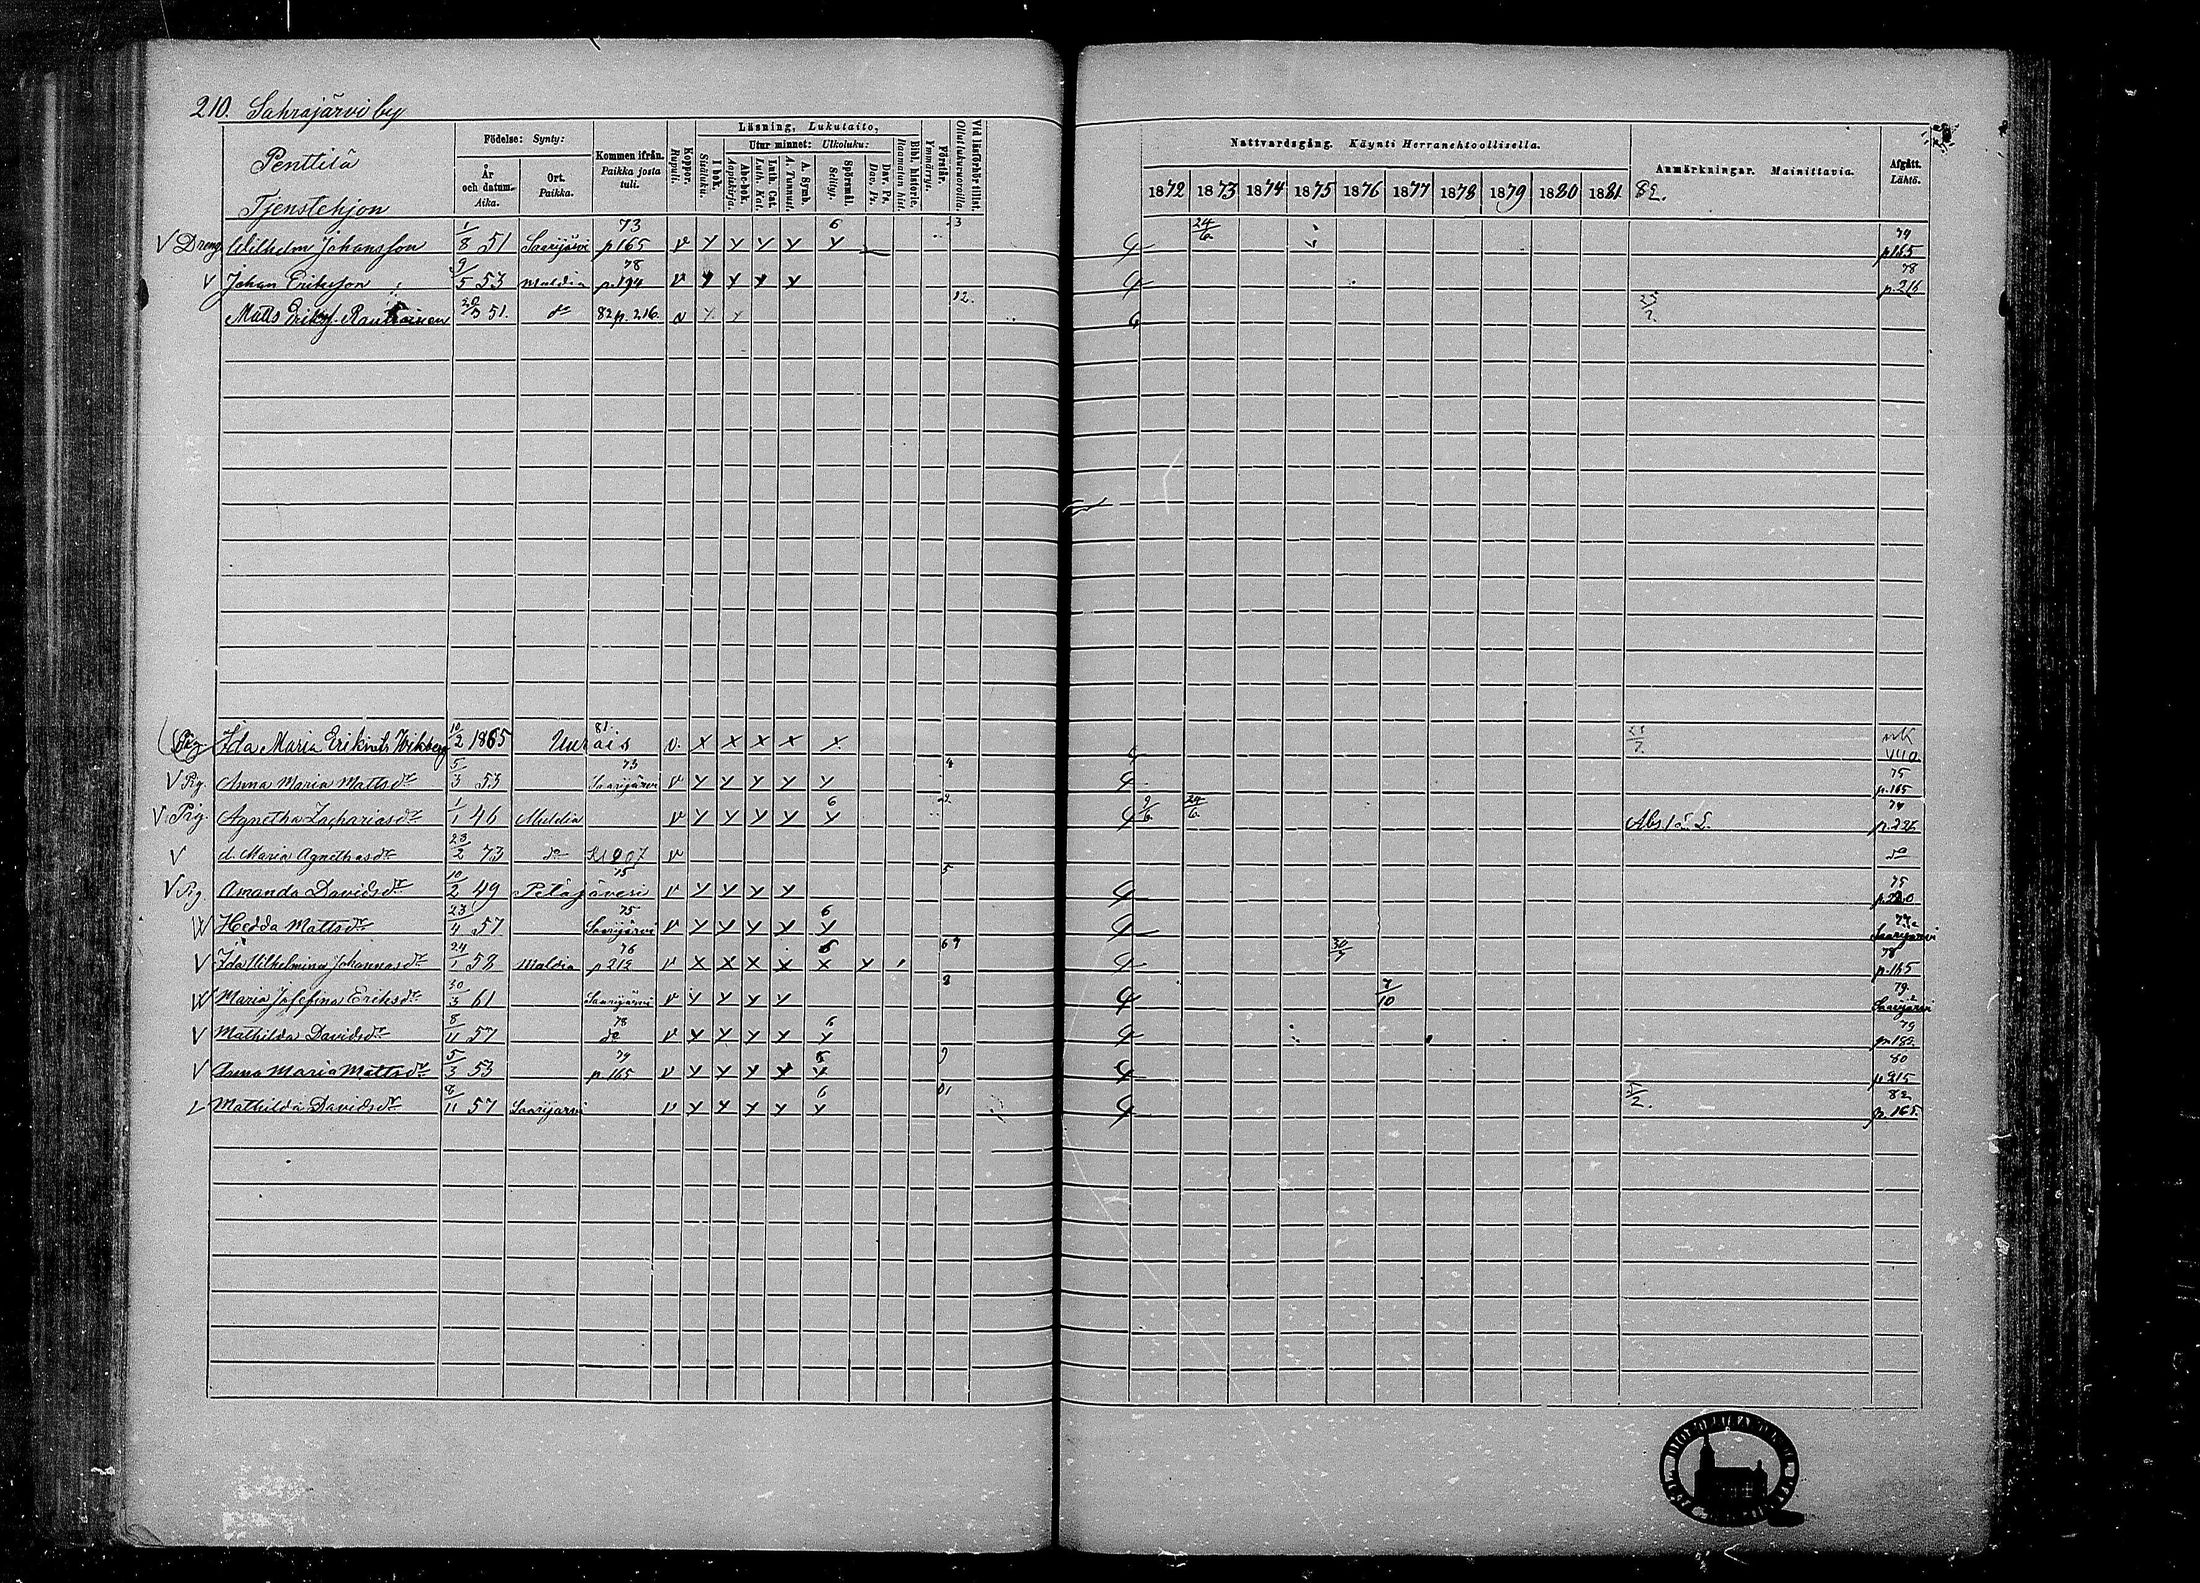 210. Sahrajärvi by
Penttilä
Tjenstehjon
Födelse: Synty:
År och datum. Aika.
Ort. Paikka.
Kommen ifrån. Paikka josta tuli.
Koppor. Rupuli.
Läsning, Lukutaito,
I bok. Sisäluku.
Utur minnet: Ulkoluku:
Abc-bok. Aapiskirja.
Luth. Cat. Luth. Kat.
A. Symb. A. Tunnust.
Spörsmål Selitys.
Dav. Ps. Dav. Ps.
Bibl. historie. Raamatun hist.
Förstår. Ymmärrys.
Vid läsförhör tillst. Ollut lukuvuoroilla.
Nattvardsgång. Käynti Herranehtoollisella.
1872 1873 1874 1875 1876 1877 1878 1879 1880 1881 82.
Anmärkningar. Mainittavia.
Afgått. Lähtö.
V Dreng Wilhelm Johansson 1/8 51 Saarijärvi 73 p165 v y y y y 6 y 3 24/6 74 p165
V Johan Eriksson 9/5 53 Muldia 78 p.194 v y y y y 78 p.216
Matts Eriks. Rautiainen 51. do 82 p. 216. v 12.
Pig Ida Maria Eriksdr Wikberg 10/2 1865 81. Uurais v. x x x x x
V Pig Anna Maria Mattsdr 5/3 53 73 Saarijärvi v y y y y y 4 75 p.165
V Pig. Agnetha Zachariasdr 1/1 46 Muldia v y y y y 6 y 9/6 24/6 74 p.226
V d. Maria Agnethasdr 23/2 73 do v do
V Pig Amanda Davidsdr 10/2 49 75 Petäjävesi v y y y y 5 75 p.220
Hedda Mattsdr 23/4 57 75 Saarijärvi v y y y y 6 y 77 Saarijärvi
V Ida Vilhelmina Johannasdr 24/1 58 Muldia 76 p212 v x x x x 6 x 67 30/7 78 p.165
Maria Josefina Eriksdr 30/3 61 Saarijärvi v y y y y 8 7/10 79. Saarijärvi
V Mathilda Davidsdr 8/11 57 78 do v y y y y 6 y 79 p.182
V Anna Maria Mattsdr 5/3 53 79 p165 v y y y y 6 y 9 80 p215
Mathilda Davidsdr 8/11 57 Saarijärvi v y y y y 6 y 01 82 p.165.